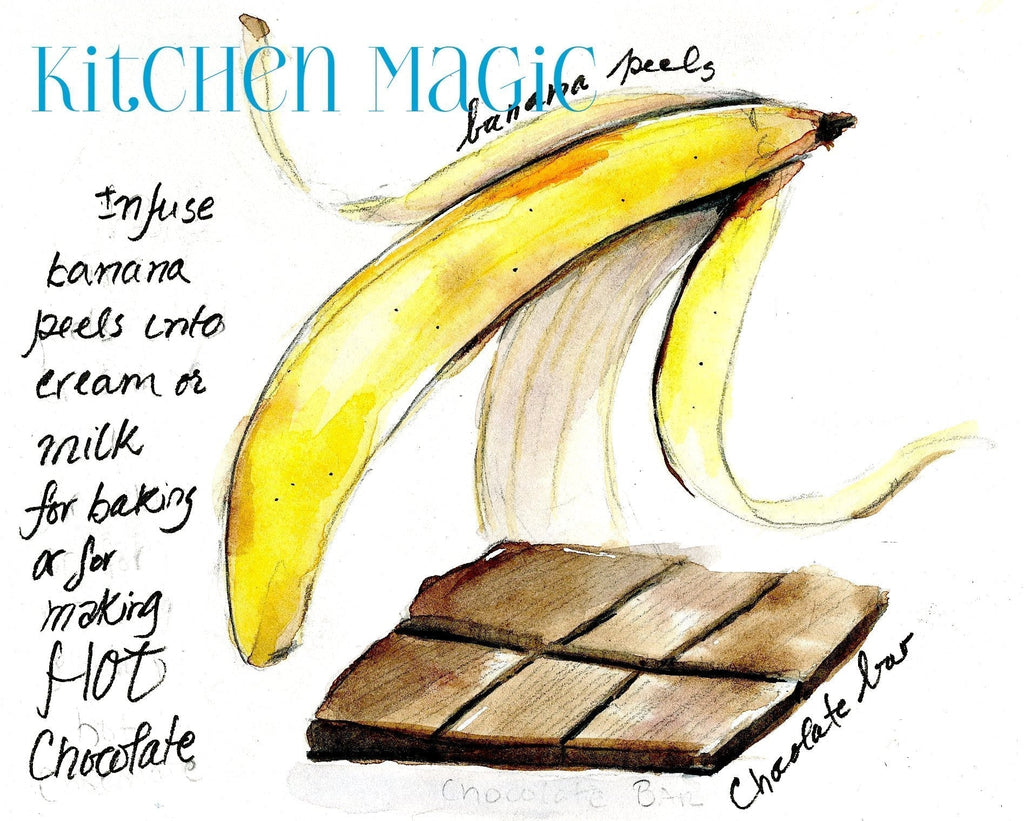 KitCHen MaGiC
banana peels
Infuse
banana
peels into
cream or
milk
for baking
or for
making
Hot
Chocolate
Chocolate bar
Chocolate Bar